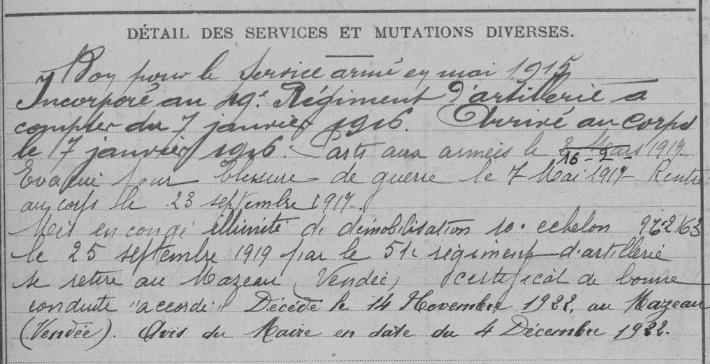 DÉTAIL DES SERVICES ET MUTATIONS DIVERSES.
Bon pour le Service armé en mai 1915
Incorporé au 49e Régiment d'artillerie à
compter du 7 janvier 1916. Arrivé au corps
le 7 janvier 1916. Parti aux armées le 2 Mars 1917
16 2
Evacué pour blessure de guerre le 7 Mai 1917 Rentré
au corps le 23 septembre 1917.
Mis en congé illimité de démobilisation 10e échelon 962163
le 25 septembre 1919 par le 51e régiment d'artillerie
se retire au Mazeau (Vendée) certificat de bonne
conduite "accordé" Décédé le 14 Novembre 1922, au Mazeau
(Vendée). Avis du Maire en date du 4 Décembre 1922.